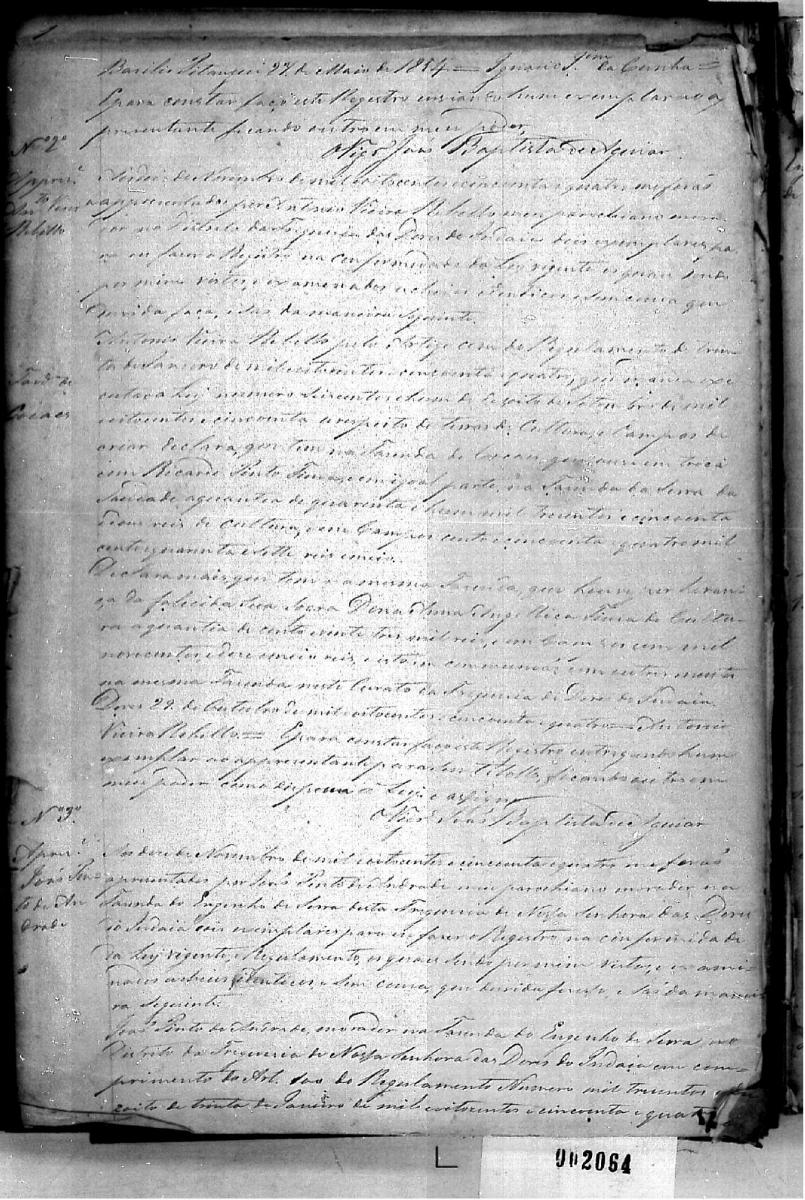 Basilio Pitangui 27 de Maio de 1854 = Ignacio Jm da Cunha =
E para constar faço este Registro entregando hum exemplar ao a
presentante ficando outro em meu poder.
Vigr.o João Baptista de Aguiar
Nº 2º
Appres.
Anto Viera
Rebello
de Novembro de mil oitocentos e cincoenta e quatro me forão
apresentados por Antonio Vieira Rebello meu parochiano mora
dor no Districto da Freguezia das Dores do Indaiá dous exemplares pa
ra eu fazer o Registro na conformidade da Ley vigente os quaes sendo
por mim vistos, e examinados achei-os identicos e sem cousa que
duvida faça, e são da maneira seguinte.
Antonio Vieira Rebello pelo Artigo cem do Regulamento de trin
ta de Janeiro de mil oitocentos e cincoenta e quatro, que manda exe
cutar a Ley numero seiscentos e hum de dezoito de Setembro de mil
oitocentos e cincoenta a respeito de terras de Cultura, e Campos de
criar declara, que tem na Fazenda de que houve em troca
com Ricardo Pinto em igual parte, na Fazenda da Serra da
Saudade a quantia de quarenta e hum mil trezentos e cincoenta
e dous reis de cultura, e em Campos cento e cincoenta e quatro mil
cento quarenta e sette reis e meio.
Declara mais, que tem na mesma Fazenda, que houve por heran
ça da falecida sua Sogra Dona Anna Angellica de Cultu
ra a quantia de cento e vinte tres mil reis, e em Campos cem mil
novecentos e doze e meio reis, e está em commum com outros
na mesma Fazenda neste Curato da Freguezia de Dores do Indaiá
Dores 29 de Outubro de mil oitocentos e cincoenta e quatro = Antonio
Vieira Rebello = E para constar faço este Registro entregando hum
exemplar ao appresentante para seu titollo, ficando outro em
meu poder como dispoem a Ley, e assigno
Vigr.o João Baptista de Aguiar
Nº 3º
Apres.
João Pin
to de An
drade
Aos doze de Novembro de mil oitocentos e cincoenta e quatro me forão
apresentados por João Pinto de Andrade meu parochiano morador na
Fazenda do Engenho de Serra desta Freguezia de Nossa Senhora das Dores
do Indaiá dois exemplares para eu fazer o Registro na conformidade
da Ley vigente, e Regulamento, os quaes sendo por mim vistos, e exami
nados achei-os identicos, e sem cousa, que duvida fizesse, e são da manei
ra seguinte.
João Pinto de Andrade, morador na Fazenda do Engenho de Serra, no
Districto da Freguezia de Nossa Senhora das Dores do Indaiá em com
primento do Art. 100 do Regulamento Numero mil trezentos e de
zoito de trinta de Janeiro de mil oitocentos e cincoenta e quatro
002064